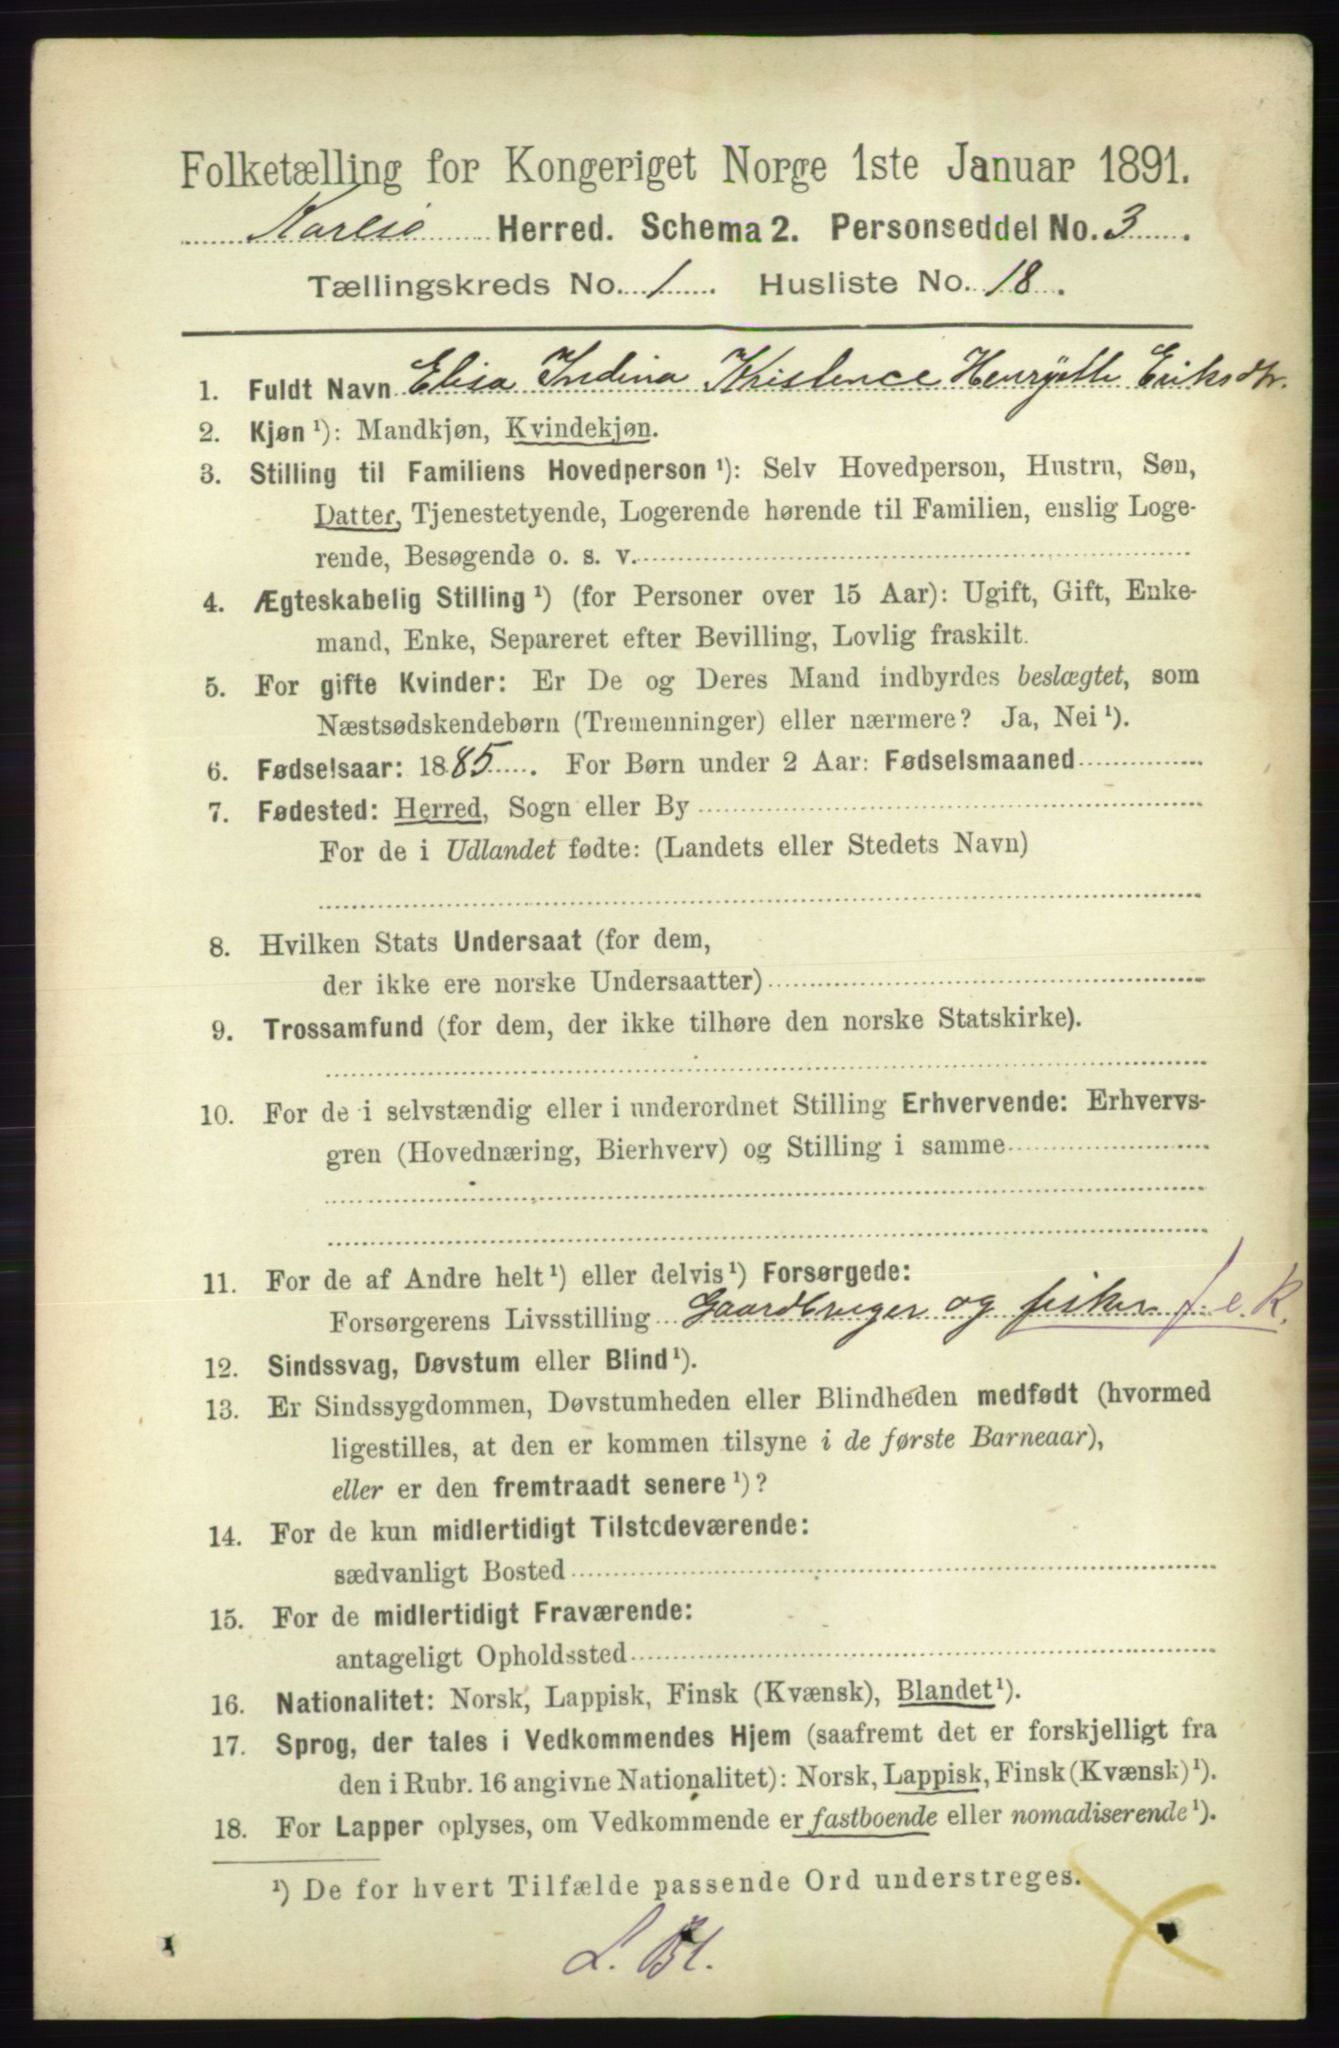 Folketælling for Kongeriget Norge 1ste Januar 1891.
Karlsø Herred. Schema 2. Personseddel No. 3.
Tællingskreds No. 1. Husliste No. 18.
1. Fuldt Navn Elisa Indina Kristence Henrytte Eriksdtr.
2. Kjøn¹): Mandkjøn, Kvindekjøn.
3. Stilling til Familiens Hovedperson¹): Selv Hovedperson, Hustru, Søn,
Datter, Tjenestetyende, Logerende hørende til Familien, enslig Loge-
rende, Besøgende o. s. v.
4. Ægteskabelig Stilling¹) (for Personer over 15 Aar): Ugift, Gift, Enke-
mand, Enke, Separeret efter Bevilling, Lovlig fraskilt.
5. For gifte Kvinder: Er De og Deres Mand indbyrdes beslægtet, som
Næstsødskendebørn (Tremenninger) eller nærmere? Ja, Nei¹).
6. Fødselsaar: 1885. For Børn under 2 Aar: Fødselsmaaned
7. Fødested: Herred, Sogn eller By
For de i Udlandet fødte: (Landets eller Stedets Navn)
8. Hvilken Stats Undersaat (for dem,
der ikke ere norske Undersaatter)
9. Trossamfund (for dem, der ikke tilhøre den norske Statskirke).
10. For de i selvstændig eller i underordnet Stilling Erhvervende: Erhvervs-
gren (Hovednæring, Bierhverv) og Stilling i samme
11. For de af Andre helt¹) eller delvis¹) Forsørgede:
Forsørgerens Livsstilling Gaardbruger og fisker f. e. K.
12. Sindssvag, Døvstum eller Blind¹).
13. Er Sindssygdommen, Døvstumheden eller Blindheden medfødt (hvormed
ligestilles, at den er kommen tilsyne i de første Barneaar),
eller er den fremtraadt senere¹)?
14. For de kun midlertidigt Tilstedeværende:
sædvanligt Bosted
15. For de midlertidigt Fraværende:
antageligt Opholdssted
16. Nationalitet: Norsk, Lappisk, Finsk (Kvænsk), Blandet¹).
17. Sprog, der tales i Vedkommendes Hjem (saafremt det er forskjelligt fra
den i Rubr. 16 angivne Nationalitet): Norsk, Lappisk, Finsk (Kvænsk)¹).
18. For Lapper oplyses, om Vedkommende er fastboende eller nomadiserende¹).
¹) De for hvert Tilfælde passende Ord understreges.
L. Bl.